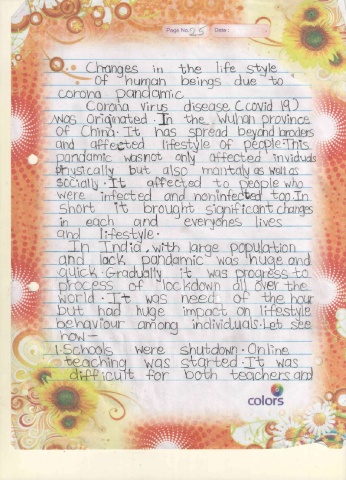 Page No. 25 Date :
Changes in the life style
Of human beings due to
corona pandamic
Corona virus disease (covid 19)
was originated. In the Wuhan province
of China. It has spread beyond baroders
and affected lifestyle of people. This
pandamic was not only affected inviduals
physically but also mantaly as well as
socially. It affected to people who
were infected and noninfected too. In
short it brought significant changes
in each and everyones lives
and lifestyle.
In India, with large population
and lack pandamic was huge and
quick. Gradually it was progress to
process of lockdown all over the
world. It was need of the hour
but had huge impact on lifestyle
behaviour among individuals. Let see
how —
1. Schools were shutdown. Online
teaching was started. It was
difficult for both teachers and
colors